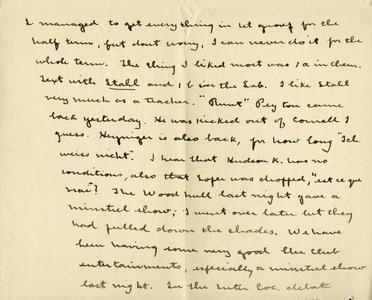 I managed to get everything in 1st group for the
half term, but dont worry, I can never do it for the
whole term. The thing I liked most was 1 a in chem.
Text with Stall and 1 b in the Lab. I like Stall
very much as a teacher. "Runt" Peyton came
back yesterday. He was kicked out of Cornell I
guess. Heyniger is also back, for how long "Ich
weiss nicht". I hear that Hudson K. has no
conditions, also that Loper was dropped, "est ce que
vrai"? The Woodhull last night gave a
minstrel show; I went over later but they
had pulled down the shades. We have
been having some very good Glee Club
entertainments, especially a minstrel show
last night. In the Inter Soc. debate